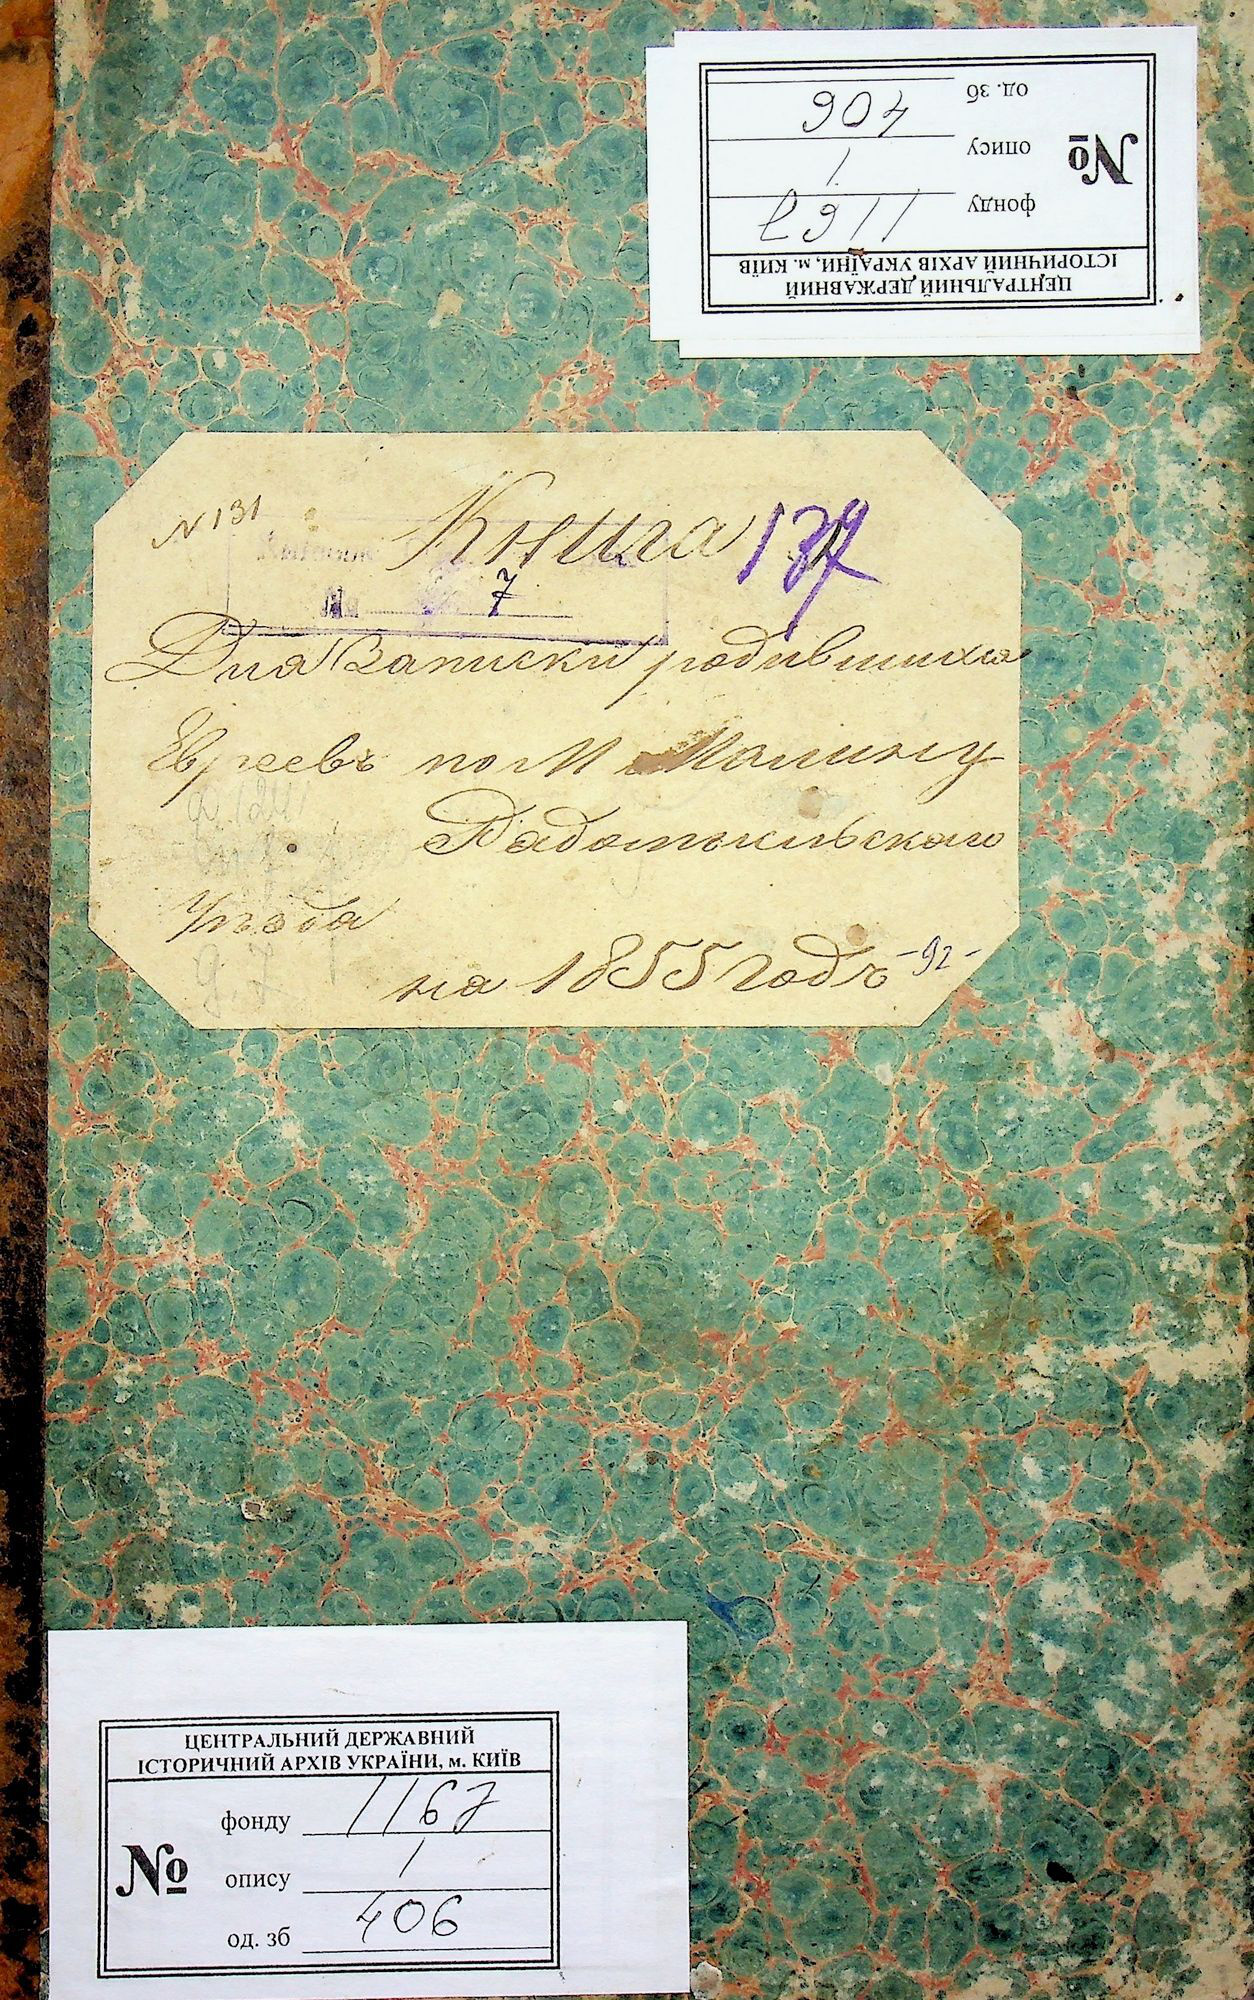 ЦЕНТРАЛЬНИЙ ДЕРЖАВНИЙ
ІСТОРИЧНИЙ АРХІВ УКРАЇНИ, м. КИЇВ
№
фонду 1167
опису 1
од. зб 406
N 131
Книга
7
Для Записки родившихся
Евреевъ по М Малину
Радомысльского
Уезда
на 1855 годъ -92-
ЦЕНТРАЛЬНИЙ ДЕРЖАВНИЙ
ІСТОРИЧНИЙ АРХІВ УКРАЇНИ, м. КИЇВ
№
фонду 1167
опису 1
од. зб 406